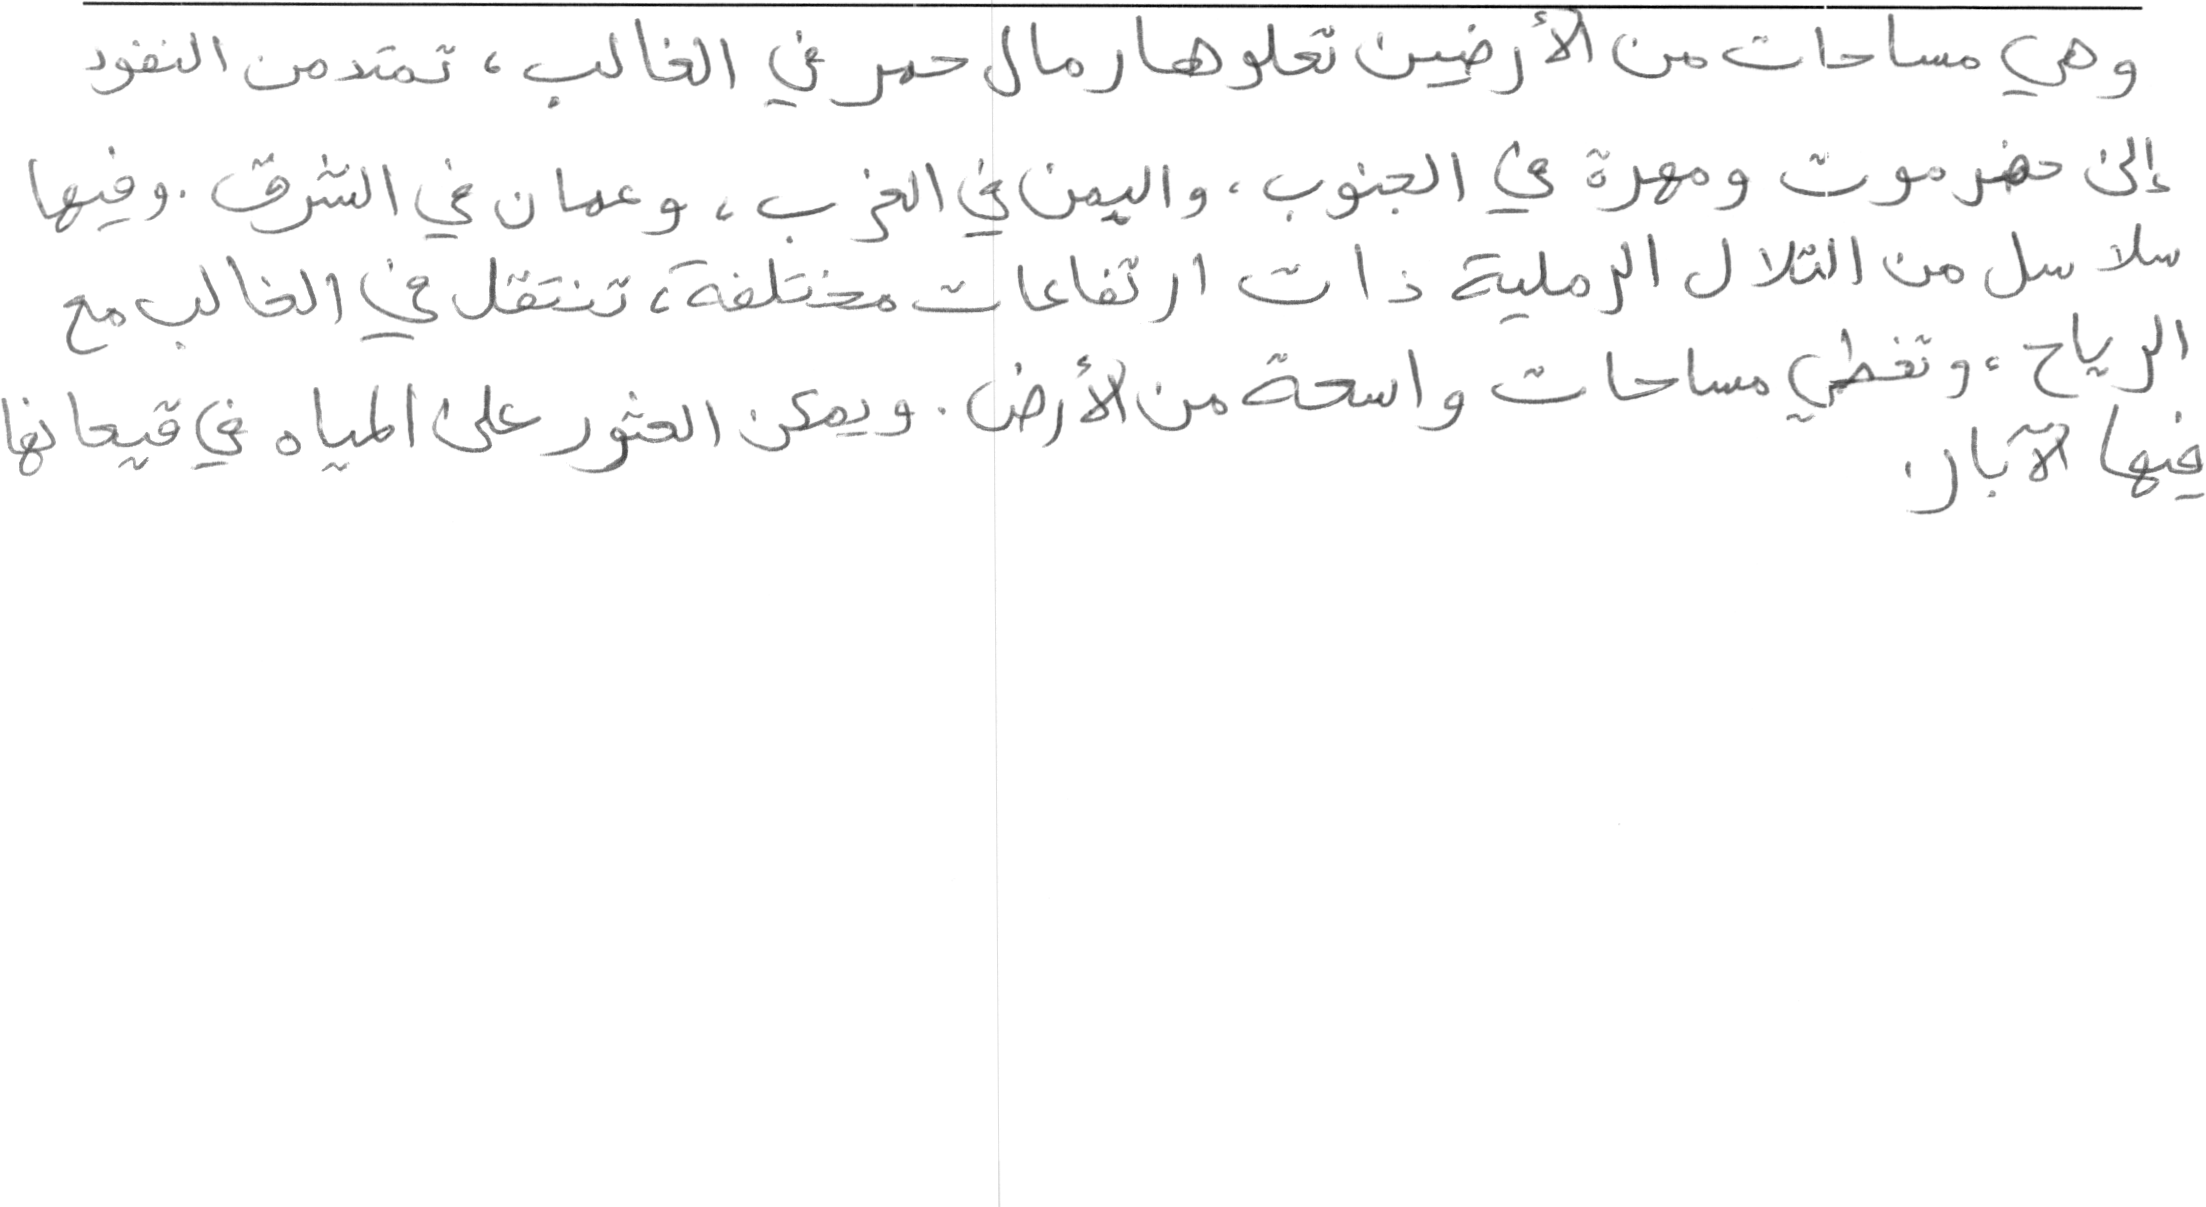 وهي مساحات من الأرضين تعلوها رمال حمر في الغالب، تمتد من النفود
إلى حضرموت ومهرة في الجنوب، واليمن في الغرب، وعمان في الشرق. وفيها
سلاسل من التلال الرملية ذات ارتفاعات مختلفة، تنتقل في الغالب مع
الرياح، وتغطي مساحات واسعة من الأرض. ويمكن العثور على المياه في قيعانها
فيها الآبار.